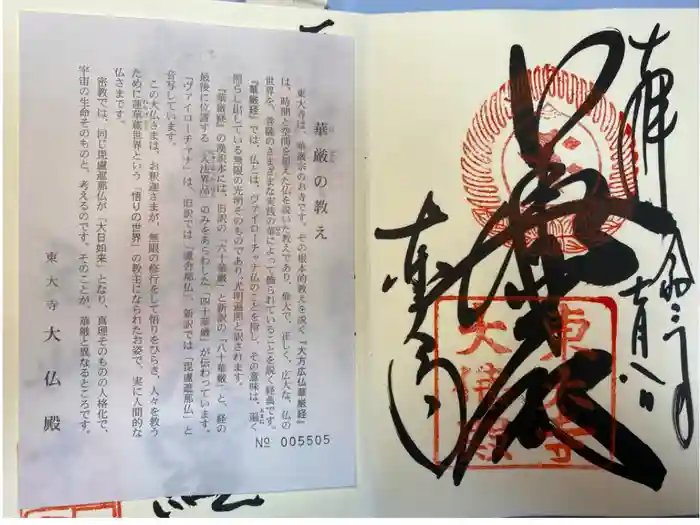 華厳の教え
東大寺は、華厳宗のお寺です。その根本的教えを説く『大方広仏華厳経』
は、時間と空間を超えた仏を説いた教えであり、偉大で、正しく、広大な、仏の
世界を、菩薩のさまざまな実践の華によって飾られていることを説く経典です。
『華厳経』では、仏とは、ヴァイローチャナ仏のことを指し、その意味は、遍く
照らし出している無限の光明そのものであり、光明遍照と訳されます。
『華厳経』の漢訳本には、旧訳の「六十華厳」と新訳の「八十華厳」と、経の
最後に位置する「入法界品」のみをあらわした「四十華厳」が伝わっています。
「ヴァイローチャナ」は、旧訳では「盧舎那仏」、新訳では「毘盧遮那仏」と
音写しています。
この大仏さまは、お釈迦さまが、無限の修行をして悟りをひらき、人々を救う
ために蓮華蔵世界という「悟りの世界」の教主になられたお姿で、実に人間的な
仏さまです。
密教では、同じ毘盧遮那仏が「大日如来」となり、真理そのものの人格化で、
宇宙の生命そのものと、考えるのです。そのことが、華厳と異なるところです。
東大寺 大仏殿
№ 005505
奉拝
華厳
東大寺